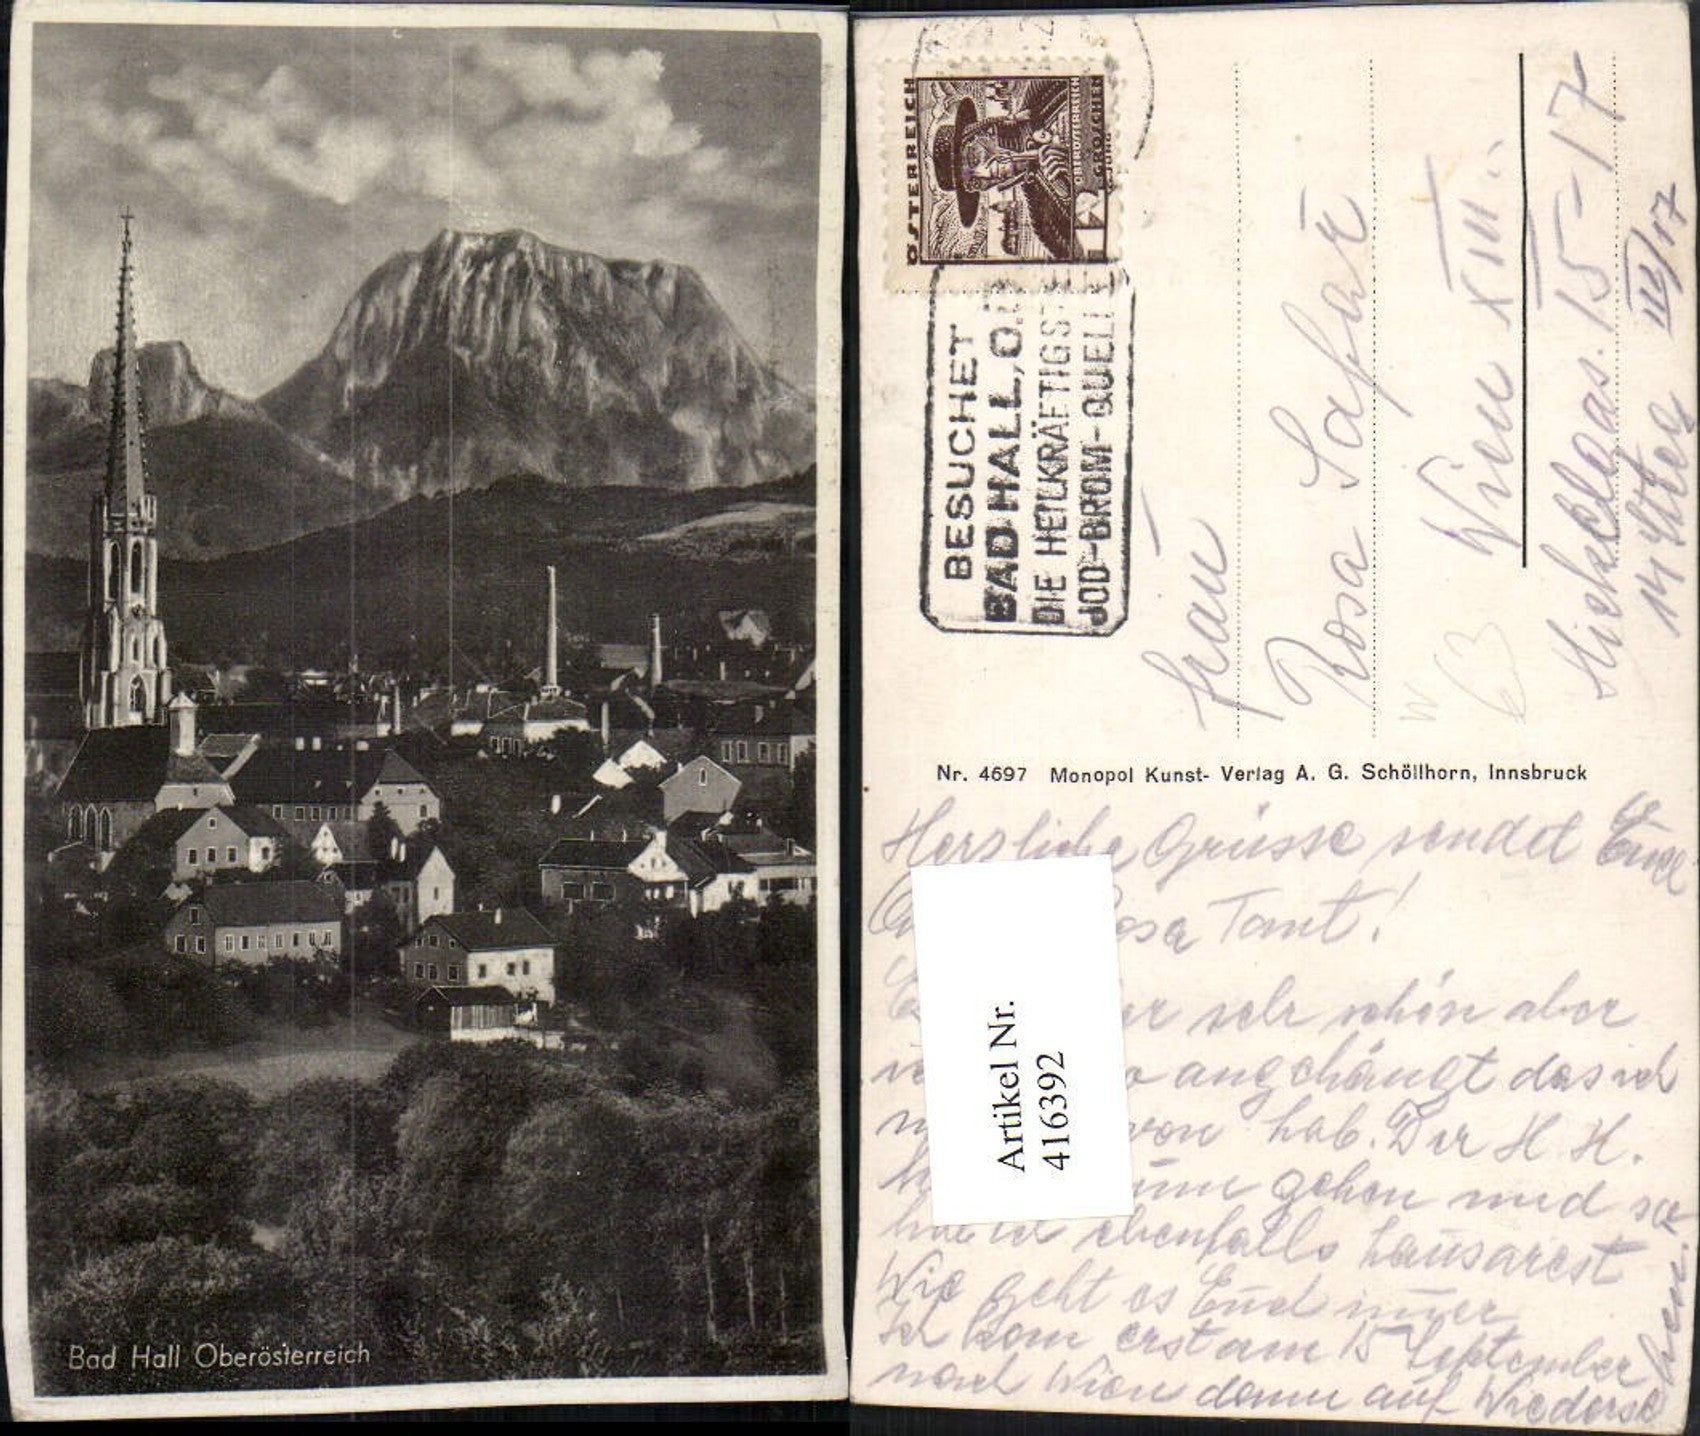 Bad Hall Oberösterreich
ÖSTERREICH
OBERÖSTERREICH
12 GROSCHEN
BESUCHET
BAD HALL, O.
DIE HEILKRÄFTIGST
JOD-BROM-QUELL
Frau
Rosa Safar
Wien XIII.
Hickelgas. 15-17
III/17
63
Nr. 4697 Monopol Kunst- Verlag A. G. Schöllhorn, Innsbruck
Herzliche Grüsse sendet Euch
Tant!
sehr schön aber
angehängt das ich
von hab. Der H. H.
gehen und so
ich ebenfalls hausarest
Wie geht es Euch immer
Ich kom erst am 15 September
nach Wien dann auf Wiedersehen.
Artikel Nr.
416392